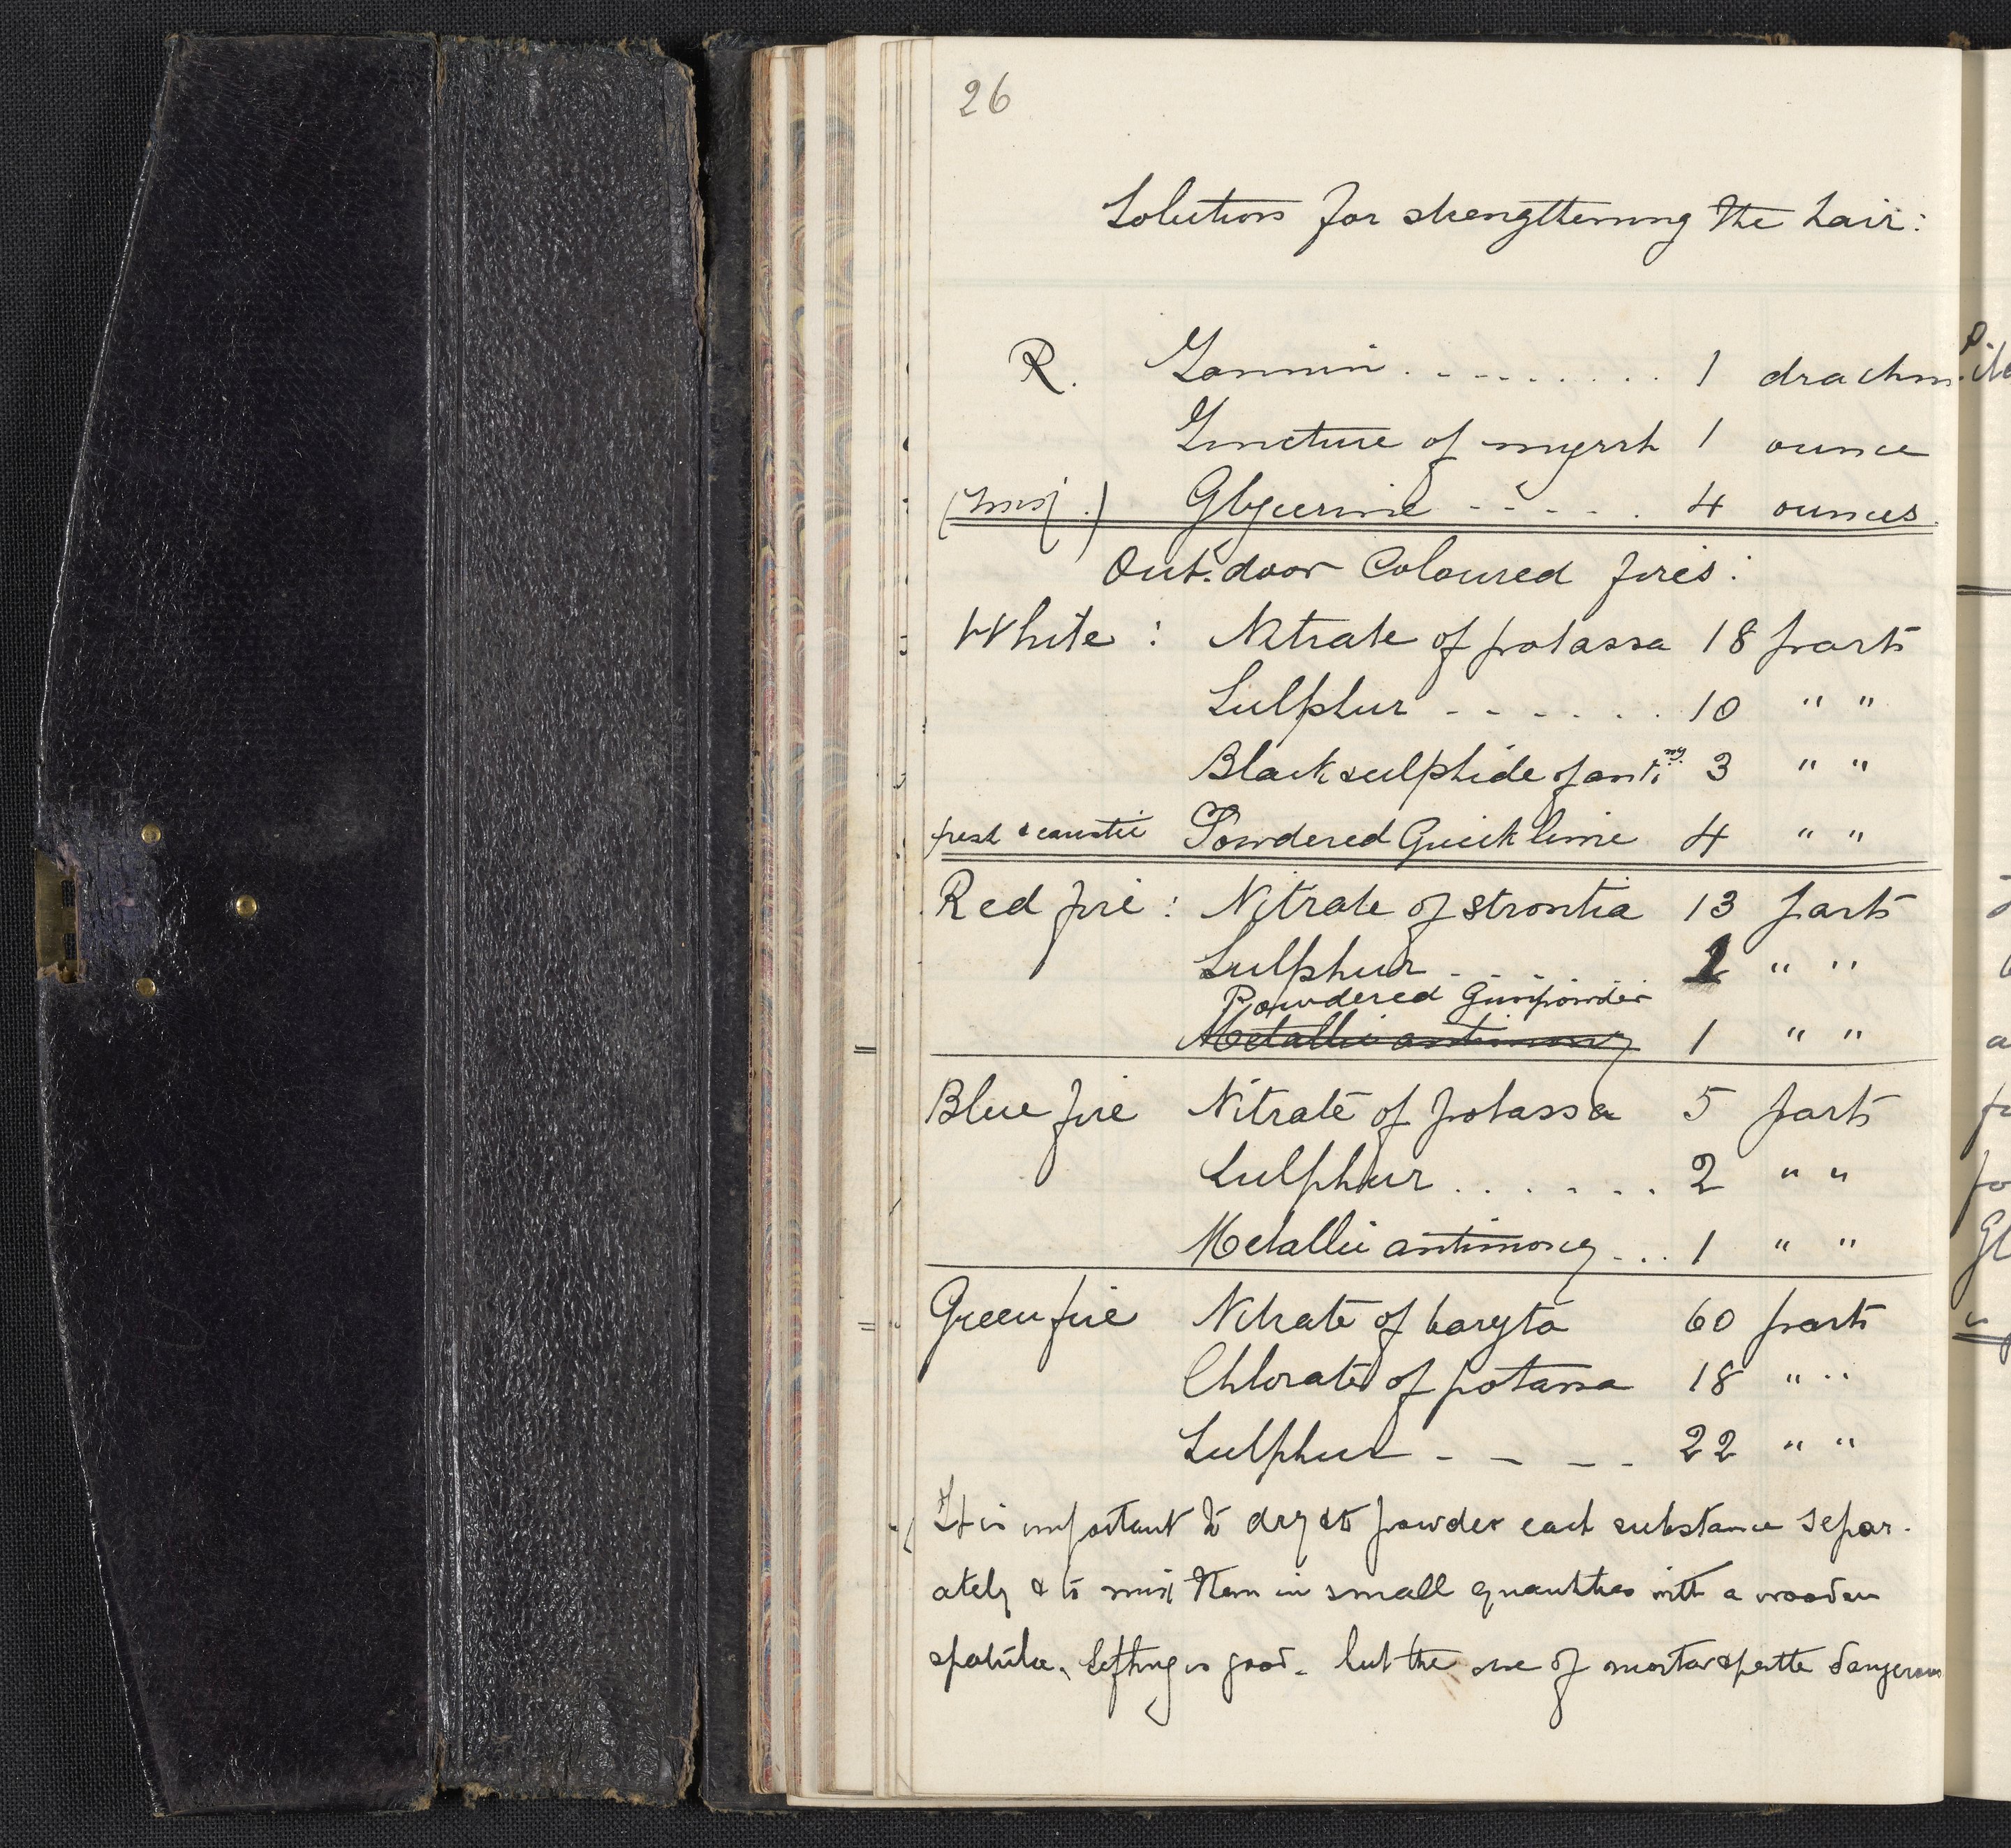 26
Solution for strengthening the hair:
R. Tannin . - - - . . . . . 1 drachm
Tincture of myrrh 1 ounce
(mix.) Glycerine - - - - - . 4 ounces.
Out-door Coloured fires:
White : Nitrate of potassa 18 parts
Sulphur - - - - . . . 10 " "
Black sulphide of anti ny 3 " "
fresh & caustic Powdered Quick lime 4 " "
Red fire : Nitrate of strontia 13 parts
Sulphur - . . - 1 " "
Powdered Gunpowder
Metallic antimony 1 " "
Blue fire Nitrate of potassa 5 parts
Sulphur . . . - . . . 2 " "
Metallic antimony - . . 1 " "
Green fire Nitrate of baryta 60 parts
Chlorate of potassa 18 " "
Sulphur - - - - 22 " "
It is important to dry & to powder each substance separ-
ately & to mix them in small quantities with a wooden
spatula. Sifting is good - but the use of mortar & pestle dangerous